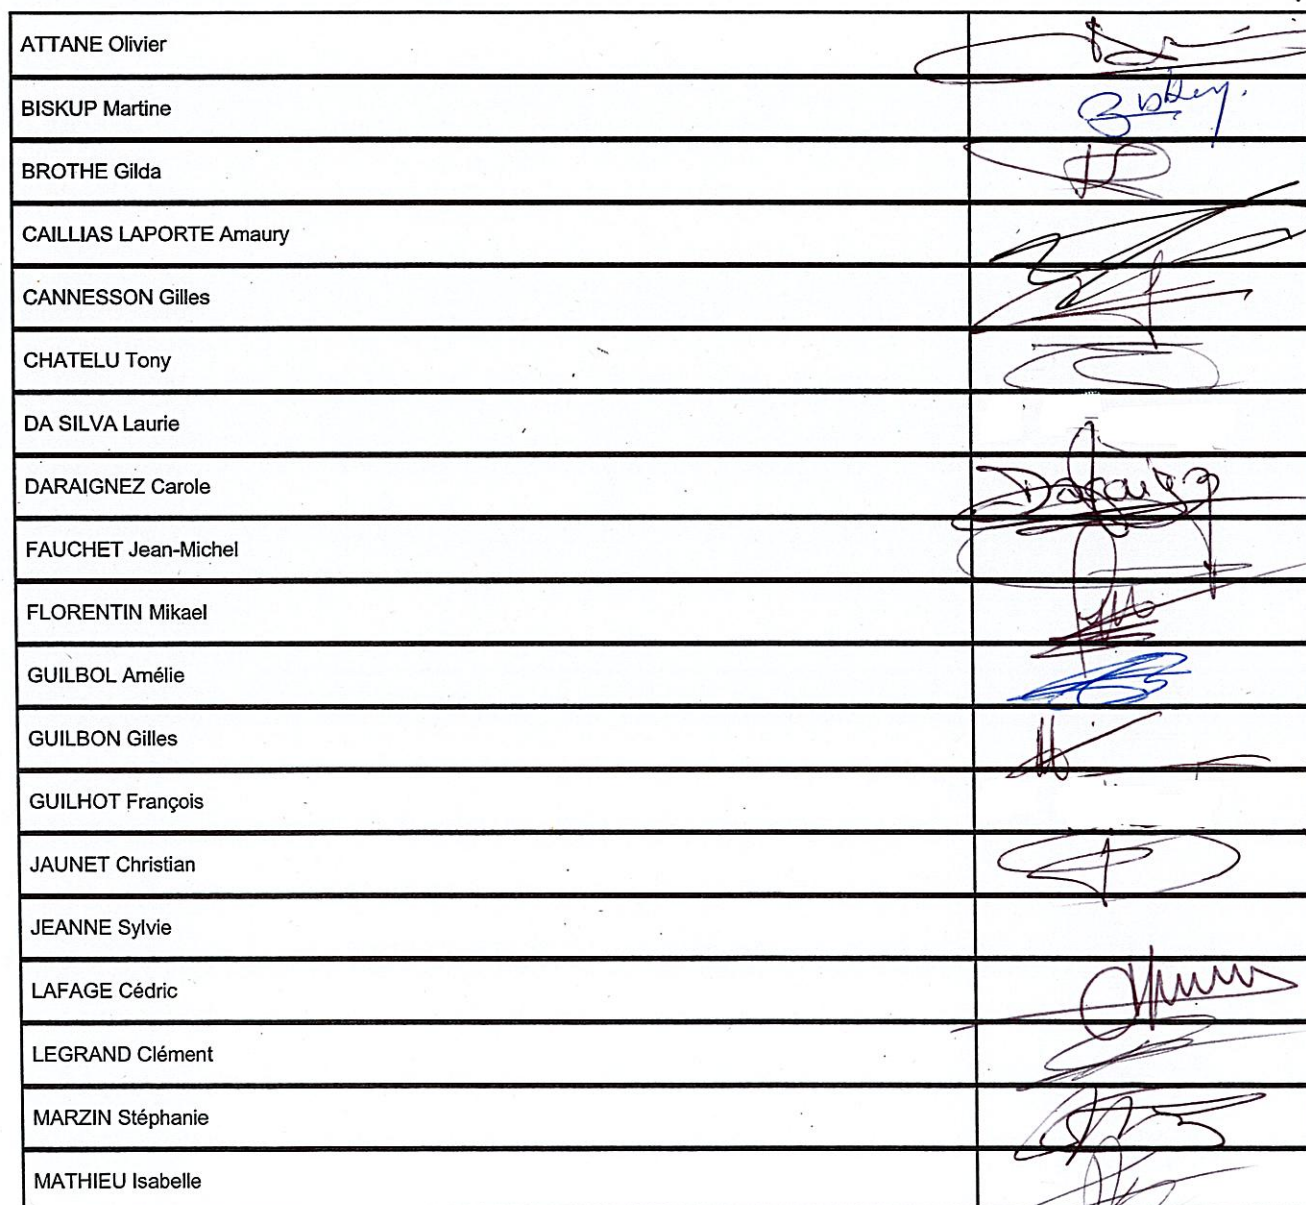 ATTANE Olivier
BISKUP Martine
BROTHE Gilda
CAILLIAS LAPORTE Amaury
CANNESSON Gilles
CHATELU Tony
DA SILVA Laurie
DARAIGNEZ Carole
FAUCHET Jean-Michel
FLORENTIN Mikael
GUILBOL Amélie
GUILBON Gilles
GUILHOT François
JAUNET Christian
JEANNE Sylvie
LAFAGE Cédric
LEGRAND Clément
MARZIN Stéphanie
MATHIEU Isabelle